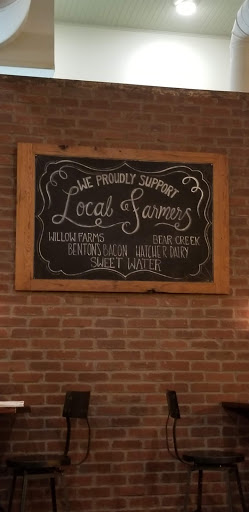 WE PROUDLY SUPPORT
Local Farmers
WILLOW FARMS BEAR CREEK
BENTON'S BACON HATCHER DAIRY
SWEET WATER